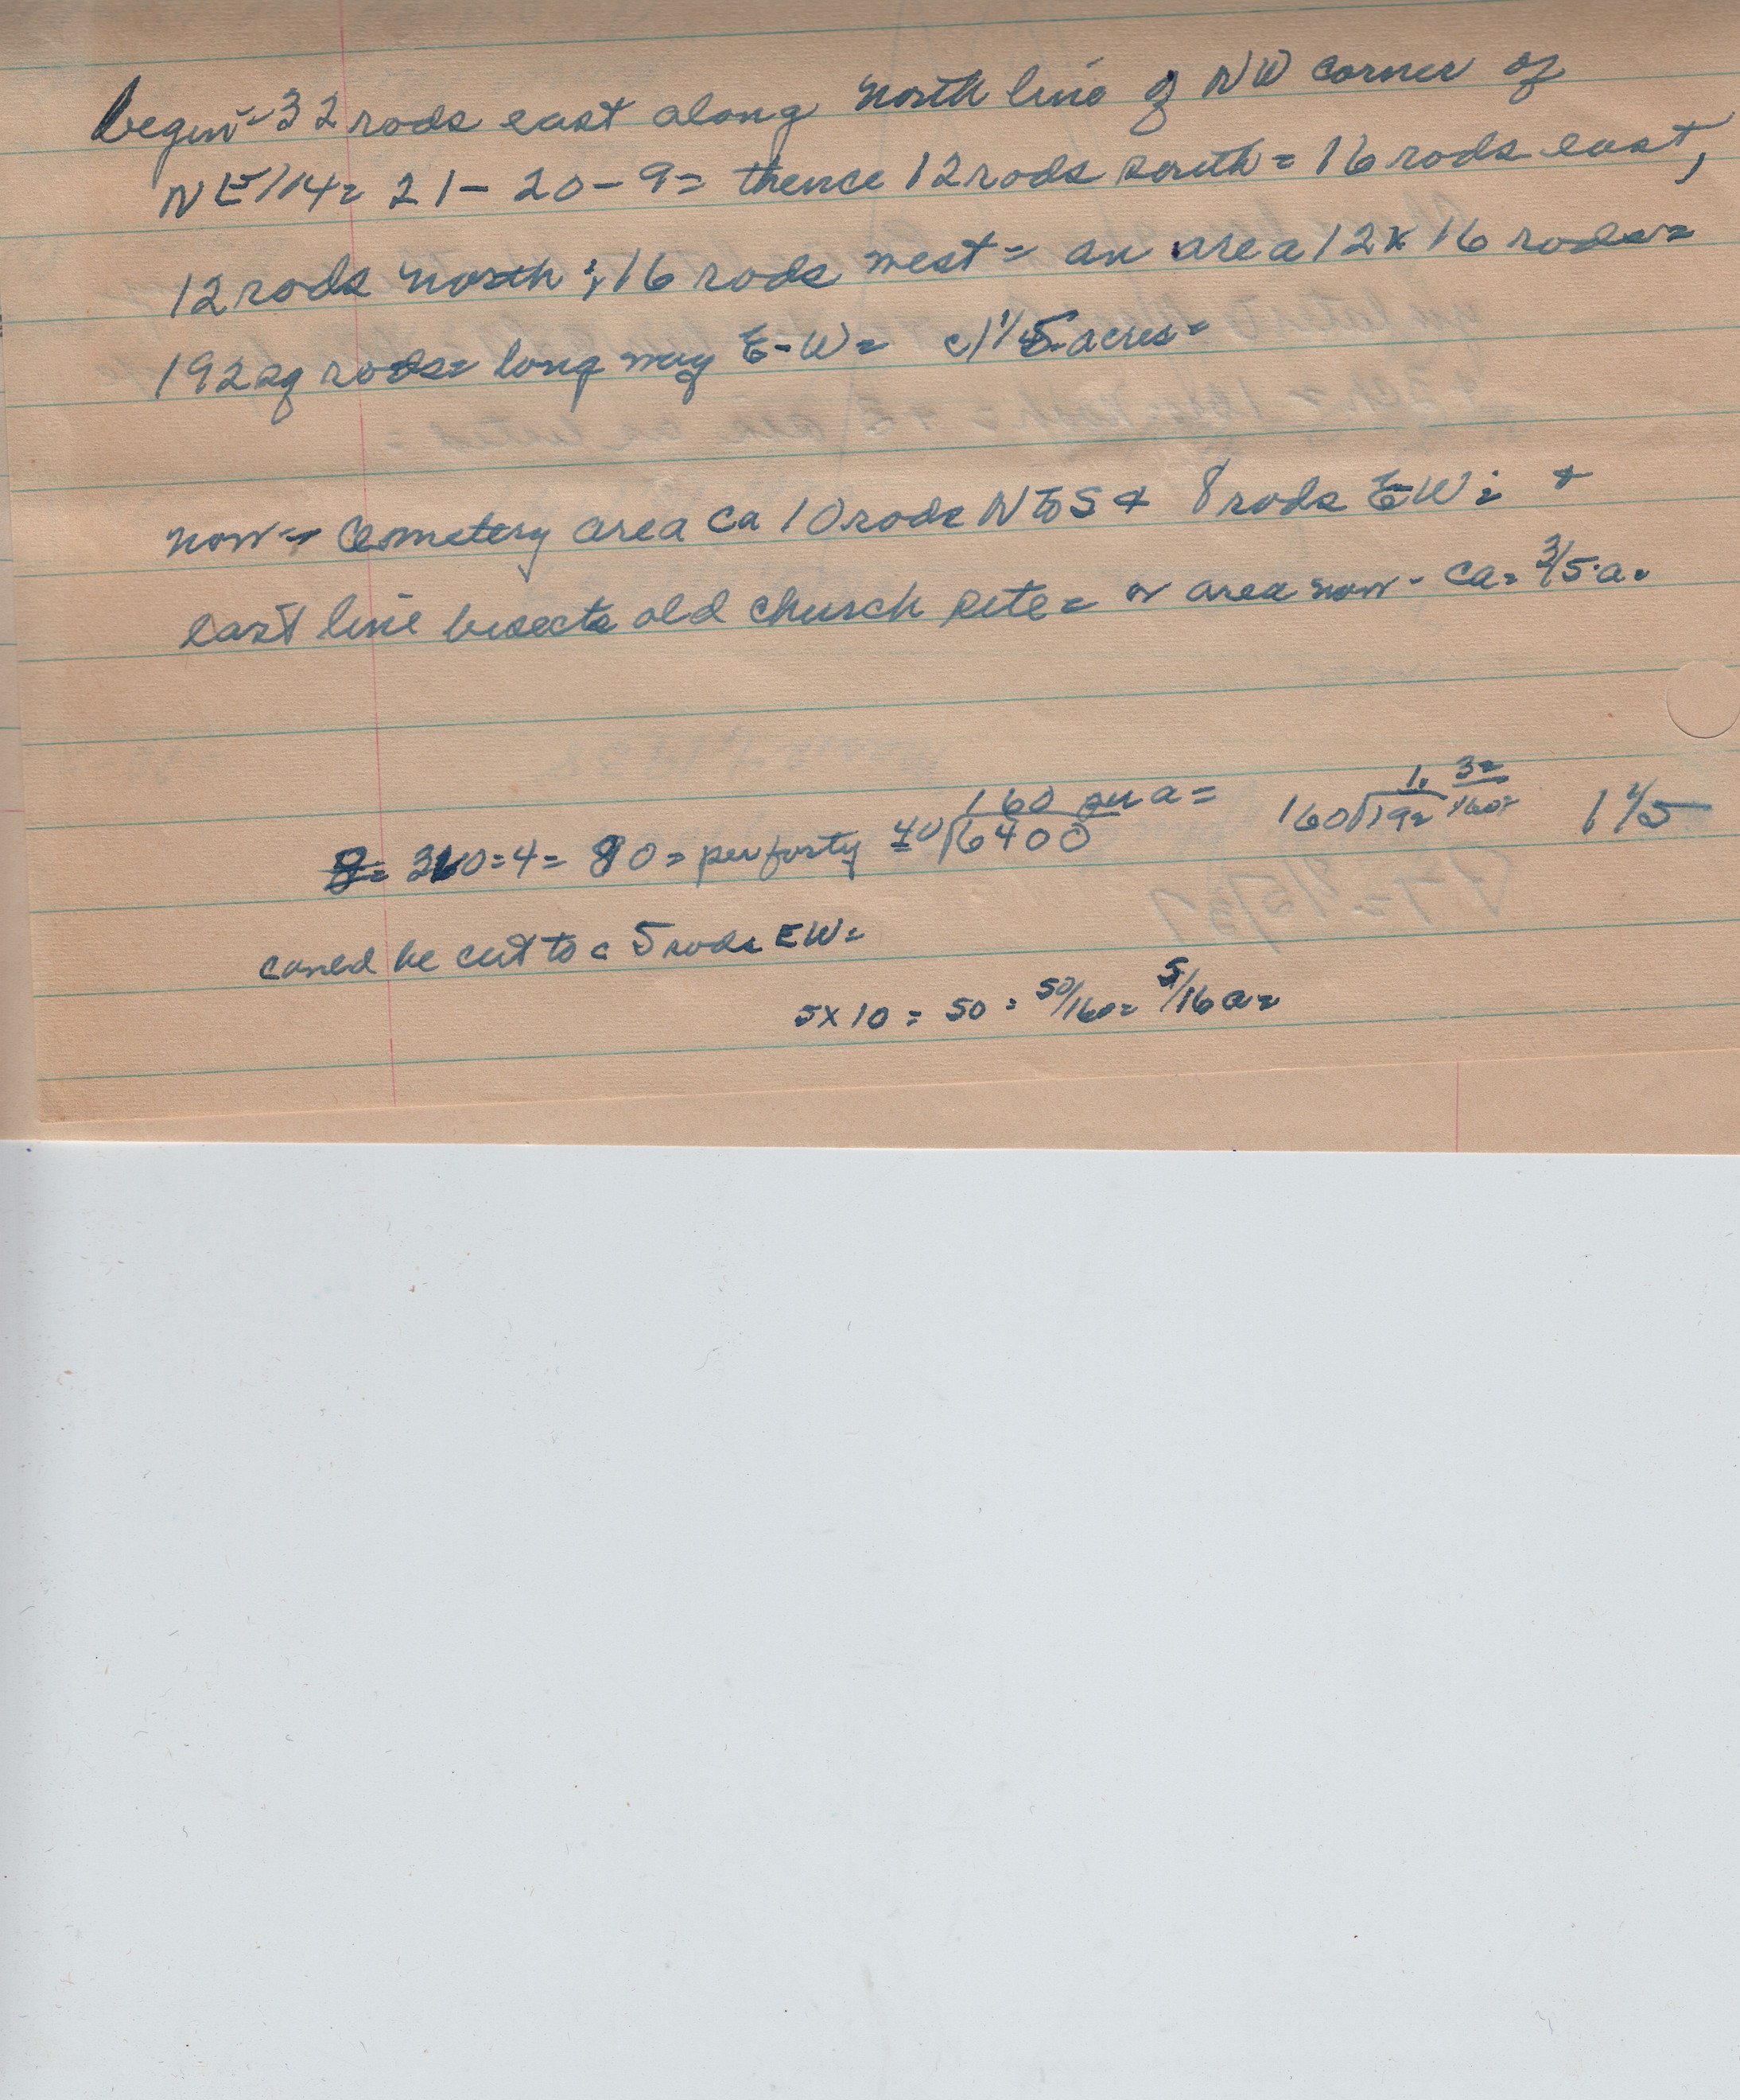 begin - 32 rods east along north line of NW corner of
NE 1/4 = 21 - 20 - 9 = thence 12 rods south = 16 rods east,
12 rods north ; 16 rods west = an area 12 x 16 rods =
192 sq rods = long way E-W = c/ 1 1/5 acres =
now = Cemetery area Ca 10 rods N to S + 8 rods E-W ; +
east line bisects old church site = or area now - ca = 3/5 a.
160 per a =
1. 32/160 =
= 4 = 80 = per forty 40√6400
160√192
1 1/5
could be cut to c 5 rods EW =
5 x 10 = 50 = 50/160 = 5/16 a =